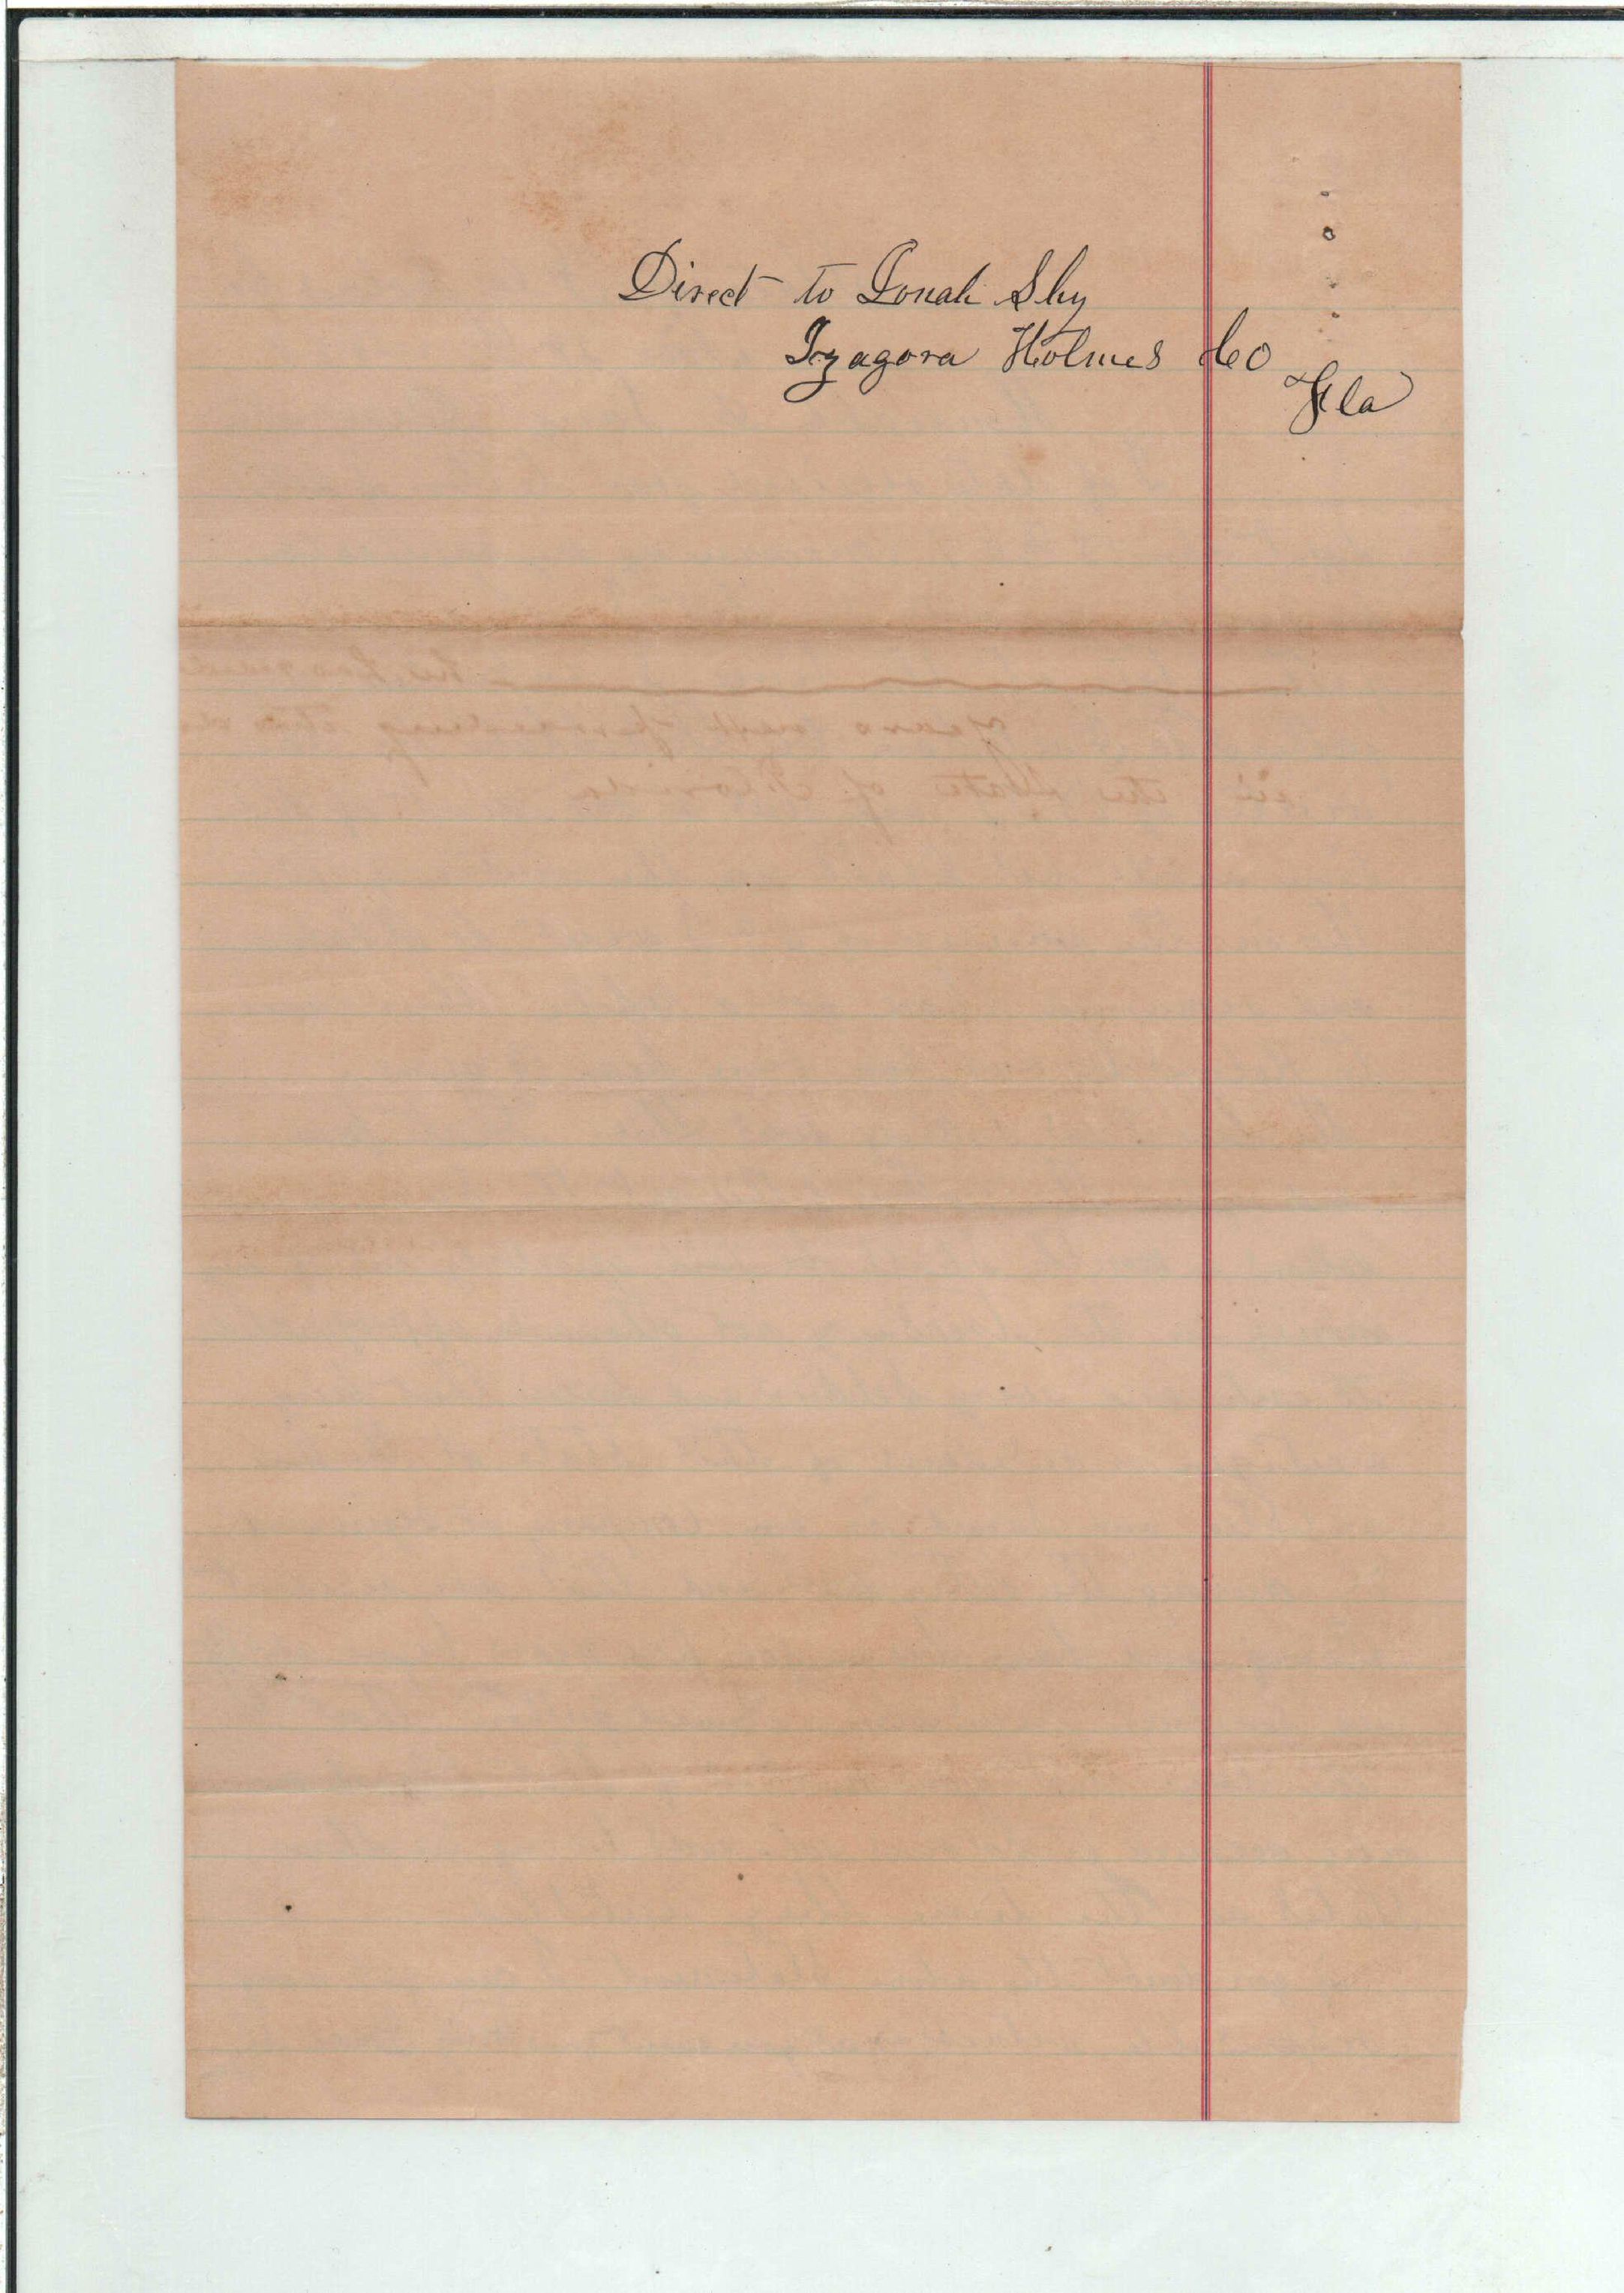 Direct to Jonah Shy
Izagora Holmes Co
Fla